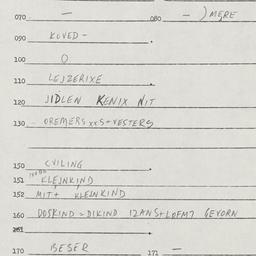 070 — 080 — ) MERE
090 KOVED -
100 O
110 LEJZERIXE
120 JIDLEN KENIX NIT
130 OREMERS xxS + VESTERS
150 CVILING
151 KLEJNKIND
152 MIT + KLEJNKIND
160 DOSKIND = DIKIND 12ANS+LOFM7 GEVORN
161
170 BESER 171 —